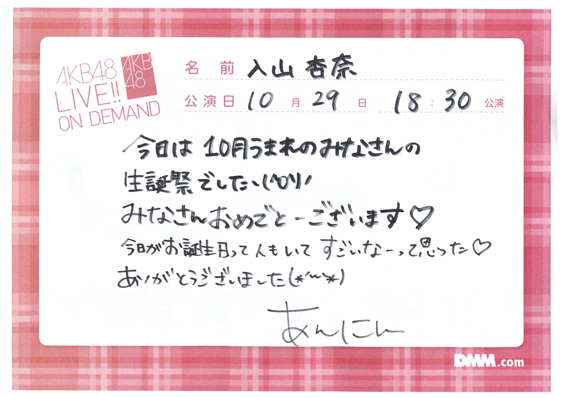 AKB48
LIVE!!
ON DEMAND
AKB
48
名前 入山 杏奈
公演日 10月 29日 18:30 公演
今日は10月うまれのみなさんの
生誕祭でしたヽ(^0^)ノ
みなさんおめでとーございます♡
今日がお誕生日って人もいてすごいなーって思った♡
ありがとうございました(*^^*)
あんにん
DMM.com